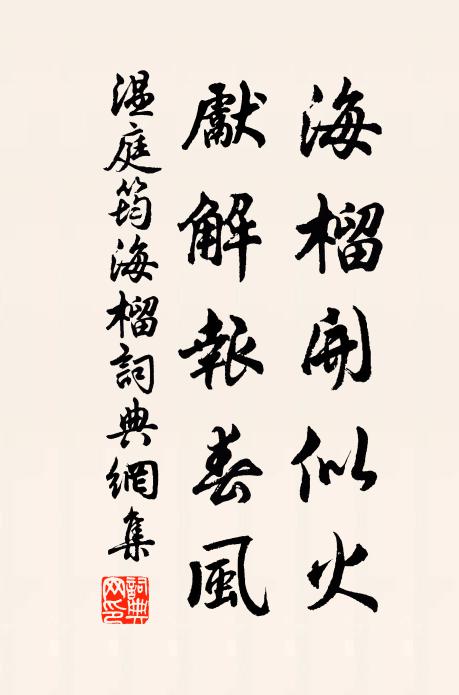 海榴開似火
獻解報春風
溫庭筠海榴詞典網集
詞典網印